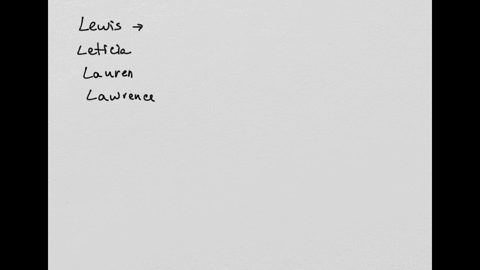 Lewis →
Leticia
Lauren
Lawrence